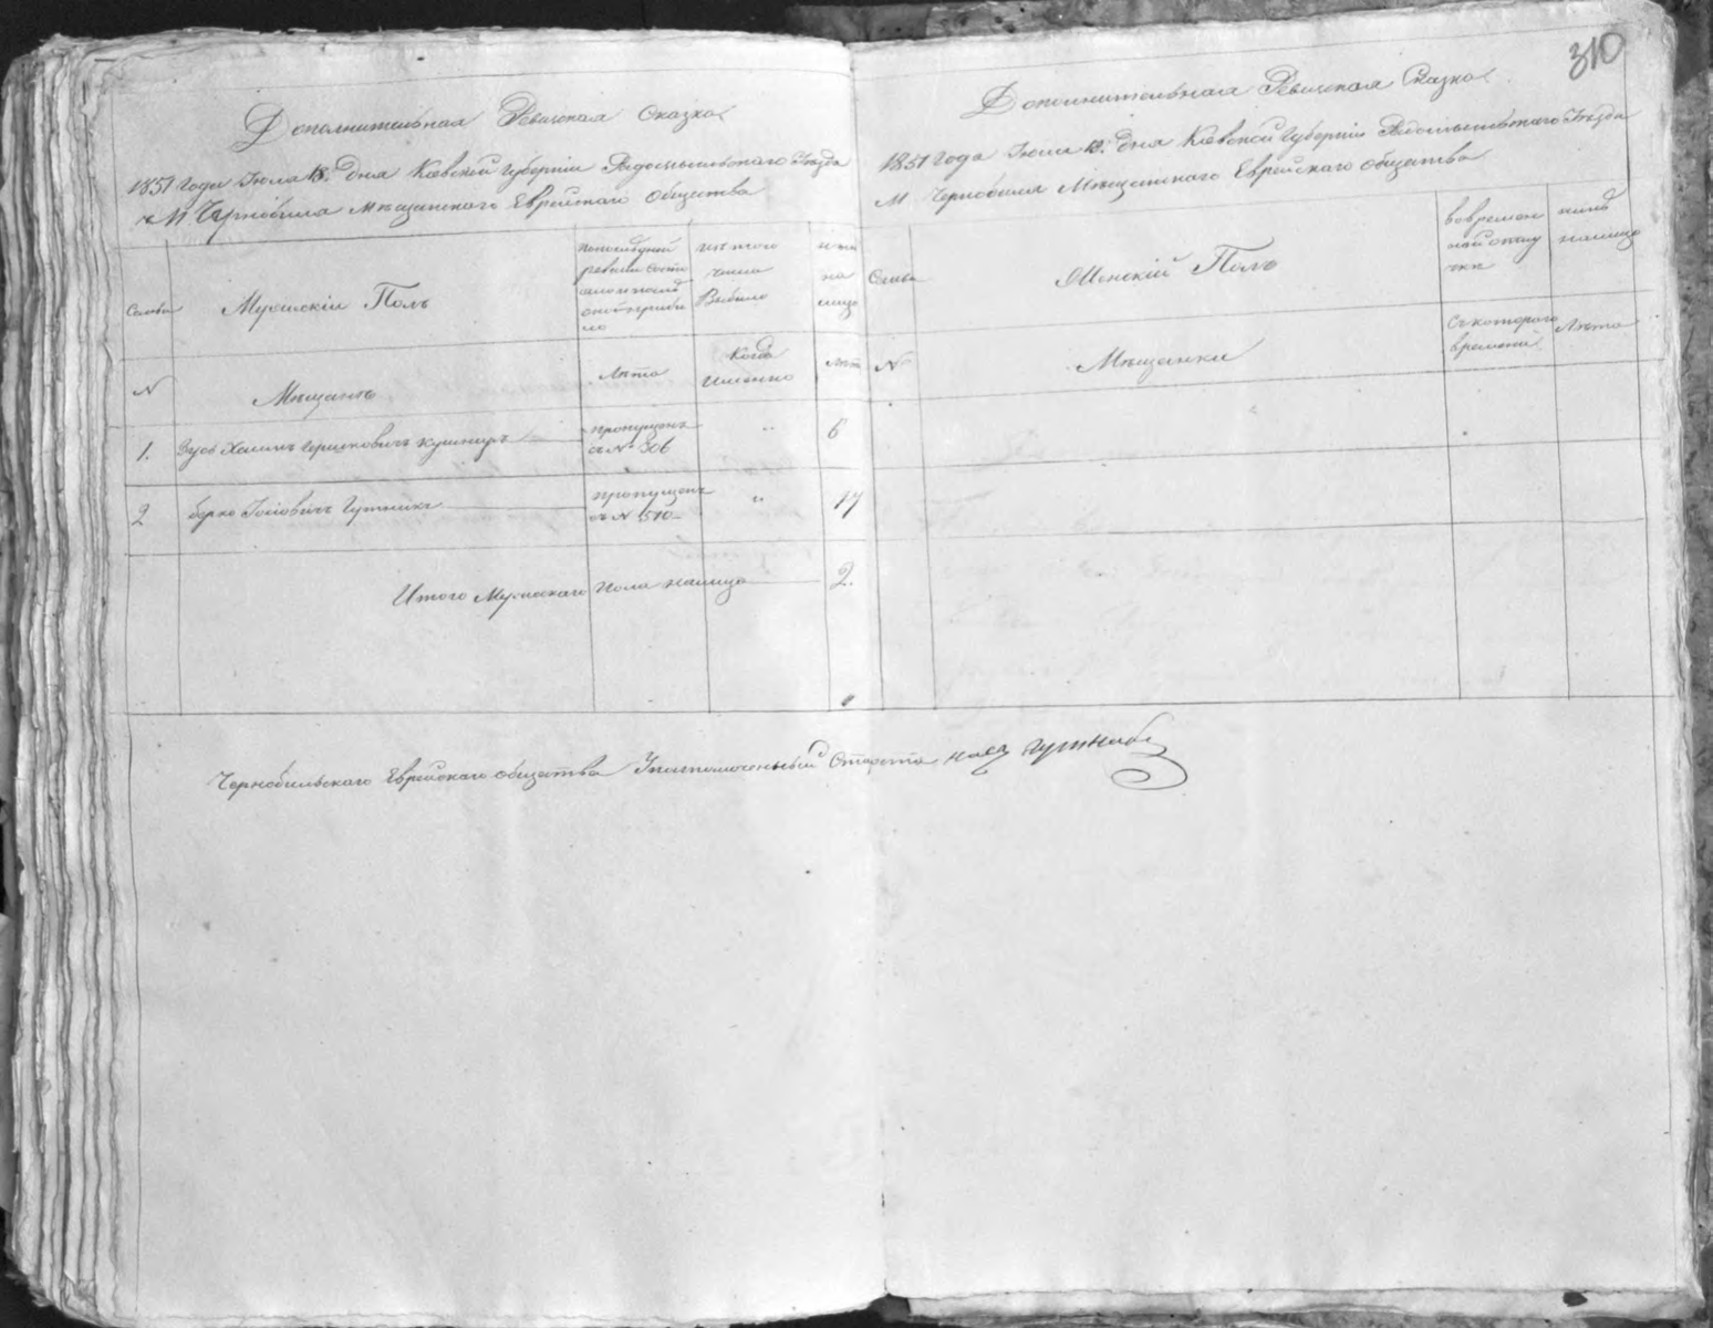 310
Дополнительная Ревизская Сказка
1851 Года Июля 18. Дня Киевской Губернии Радомысльскаго Уезда
М. Чернобиля Мѣщанскаго Еврейскаго Общества
Семьи
Мужескій Полъ
По последней ревизіи состояло и после оной прибыло
Изъ того числа Выбыло
Ныне на лицо
N
Мѣщанъ
Лѣта
Когда Именно
Лѣта
1. Зусь Хаимъ Гершковичъ Кушниръ
пропущенъ съ № 306
"
6
2 Берко Іосіовичъ Гутникъ
пропущенъ съ N 510
"
17
Итого Мужескаго Пола налицо 2.
Дополнительная Ревизская Сказка
1851 Года Июля 18. Дня Киевской Губернии Радомысльскаго Уезда
М Чернобиля Мѣщанскаго Еврейскаго Общества
Семьи
Женскій Полъ
Во временной отлучке
Ныне налицо
N
Мѣщанки
Съ котораго времени
Лѣта
Чернобильскаго Еврейскаго Общества Уполномоченный Староста